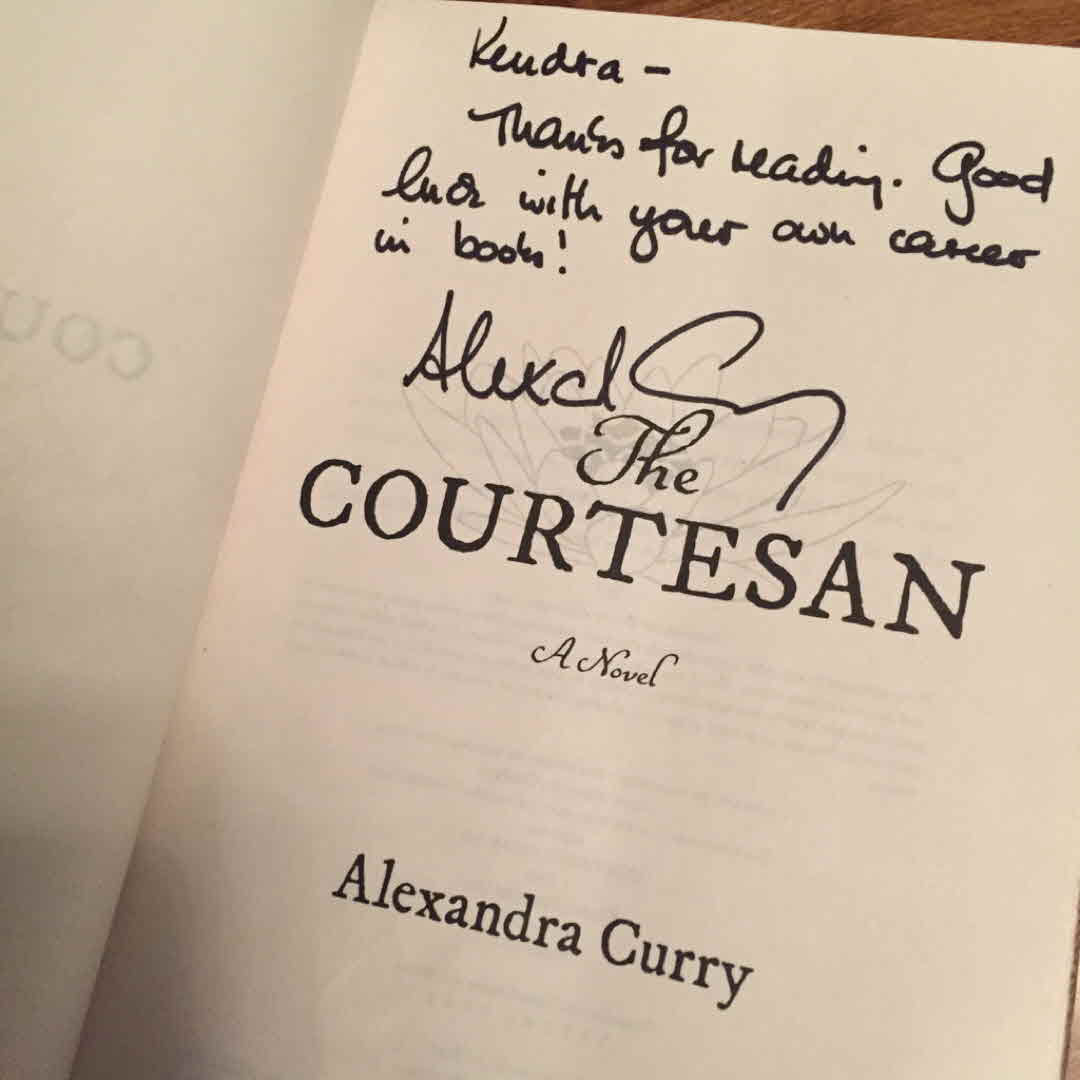 Kendra -
Thanks for reading. Good
luck with your own career
in books!
Alexd Curry
The
COURTESAN
A Novel
Alexandra Curry
COU